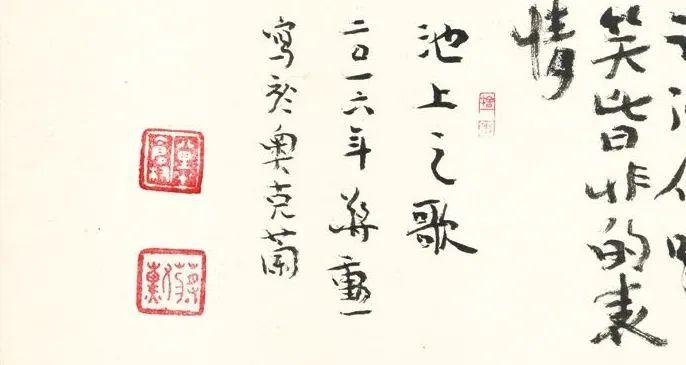 笑皆非的表
情
池上之歌
二〇一六年 蔣勳
寫於奧克蘭
蔣勳